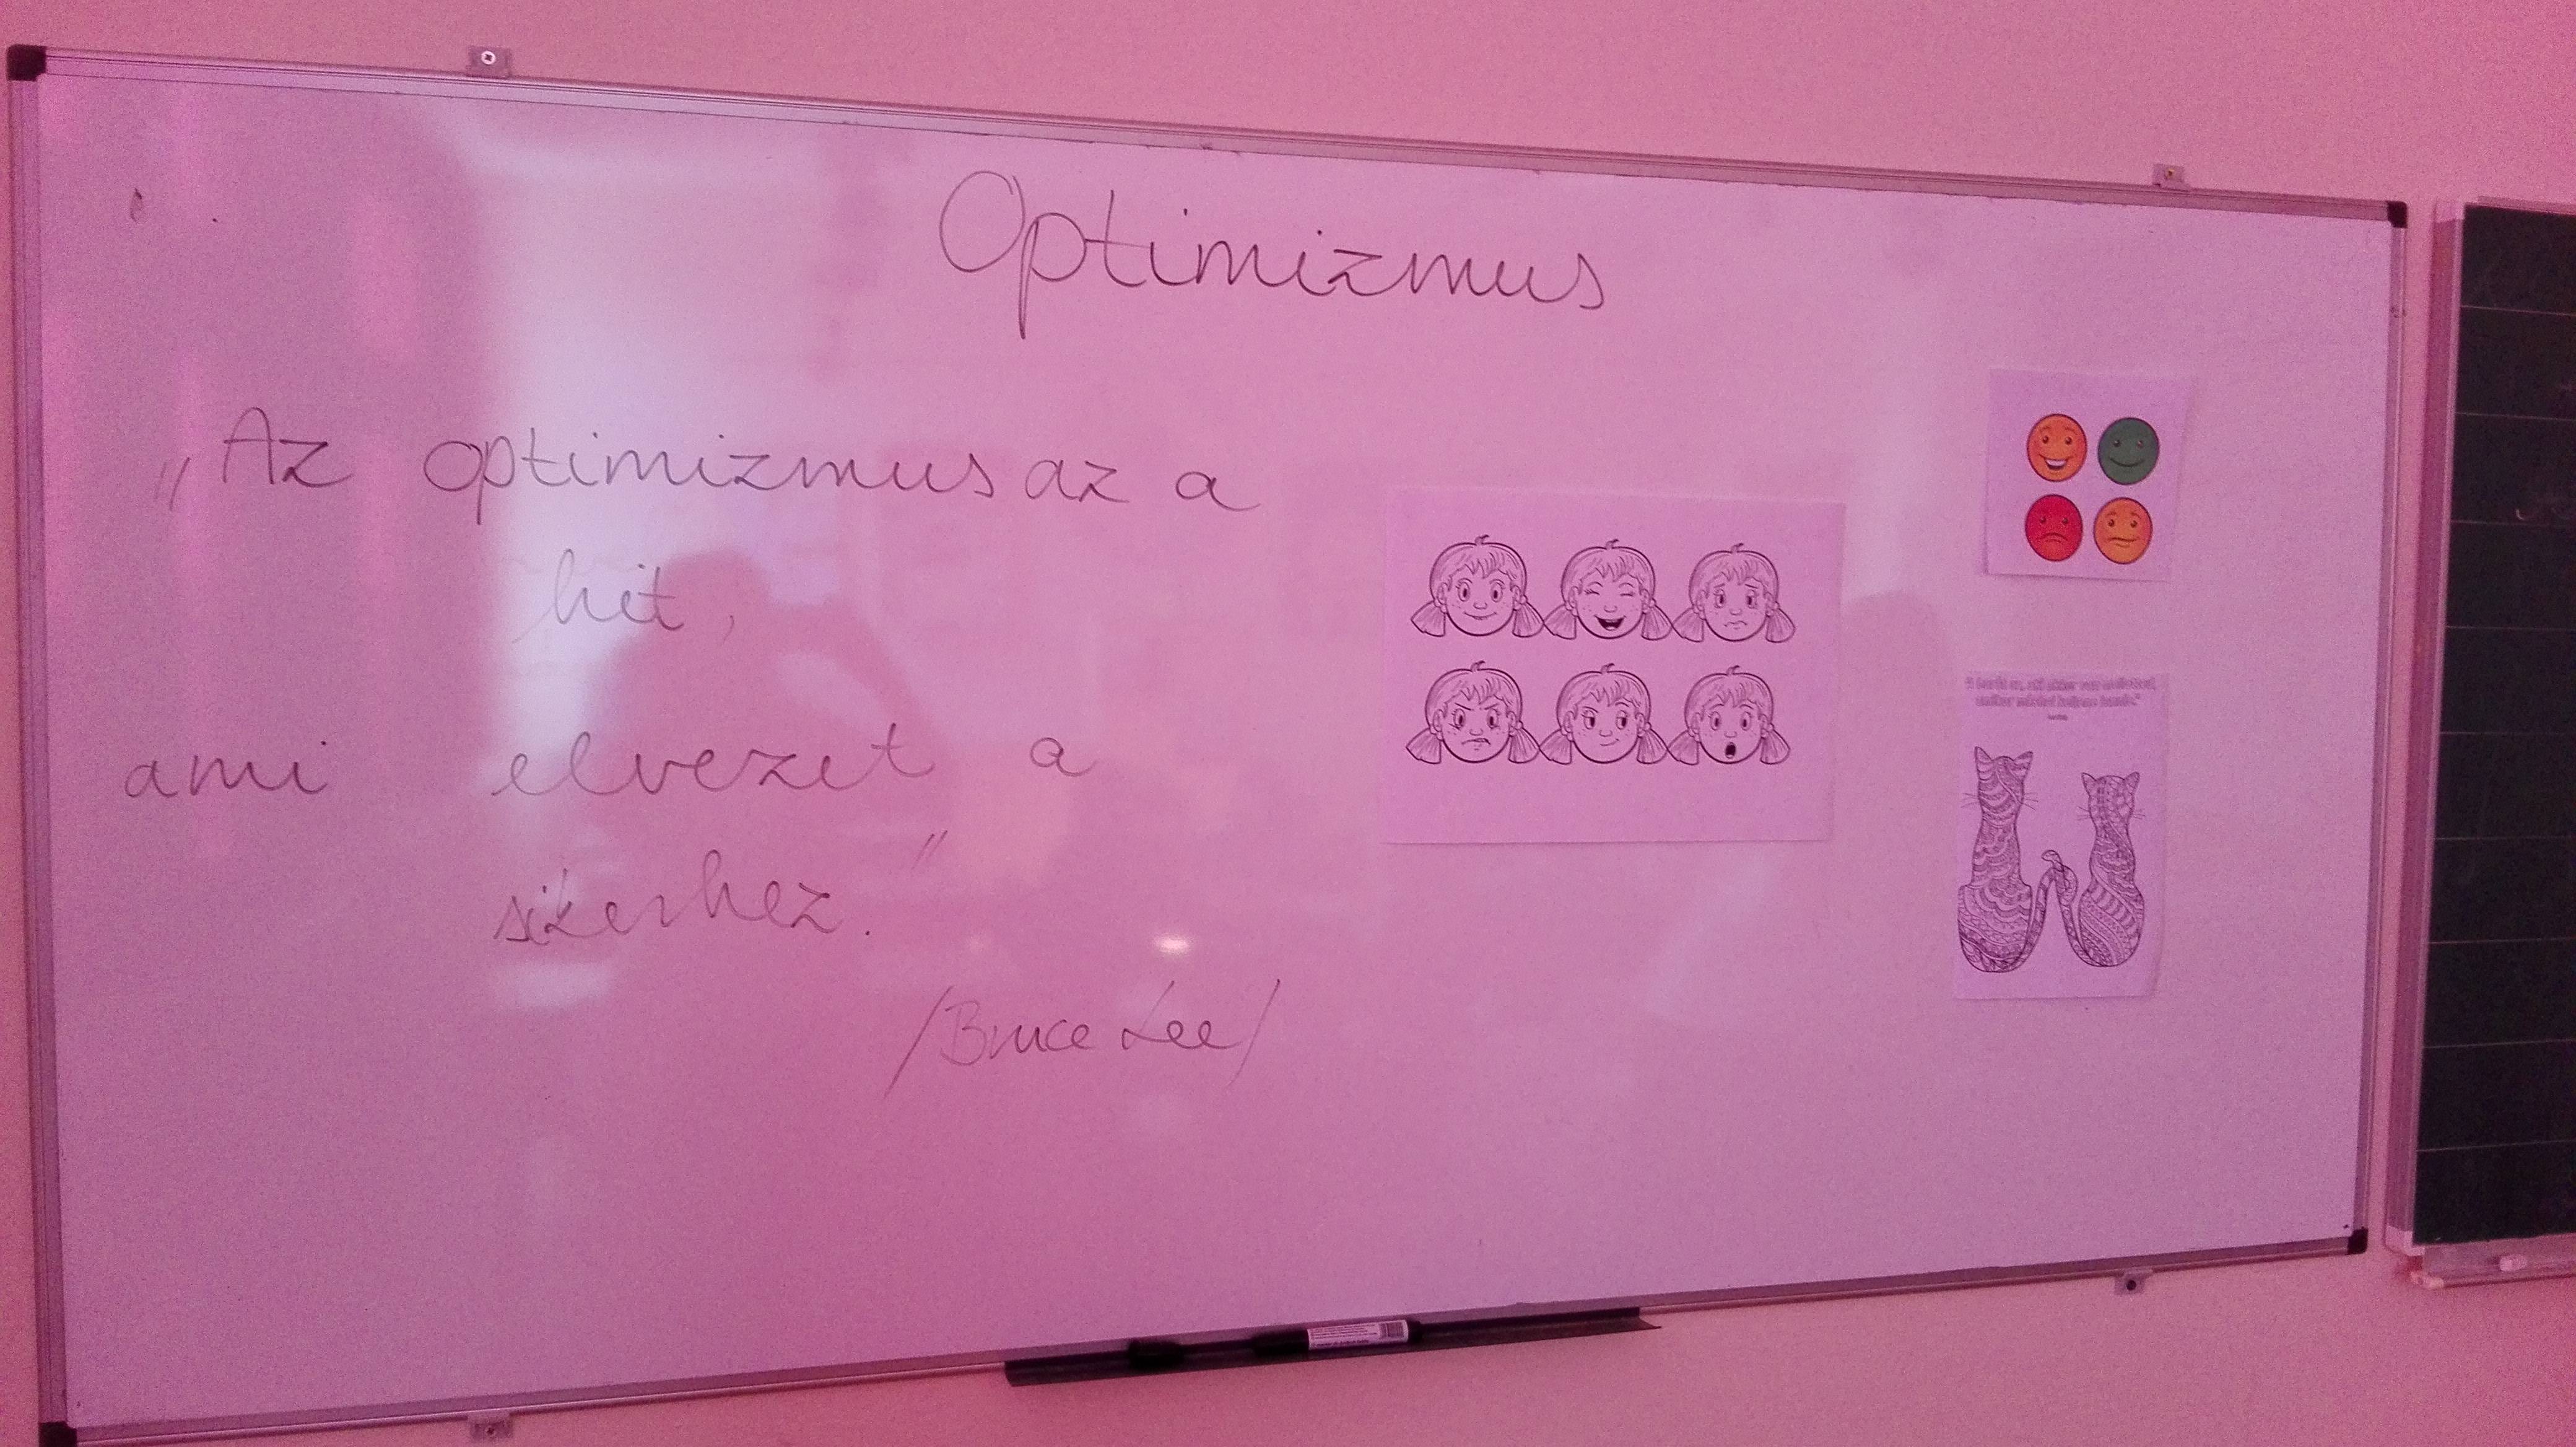 Optimizmus
„Az optimizmus az a
hit,
ami elvezet a
sikerhez.”
/Bruce Lee/